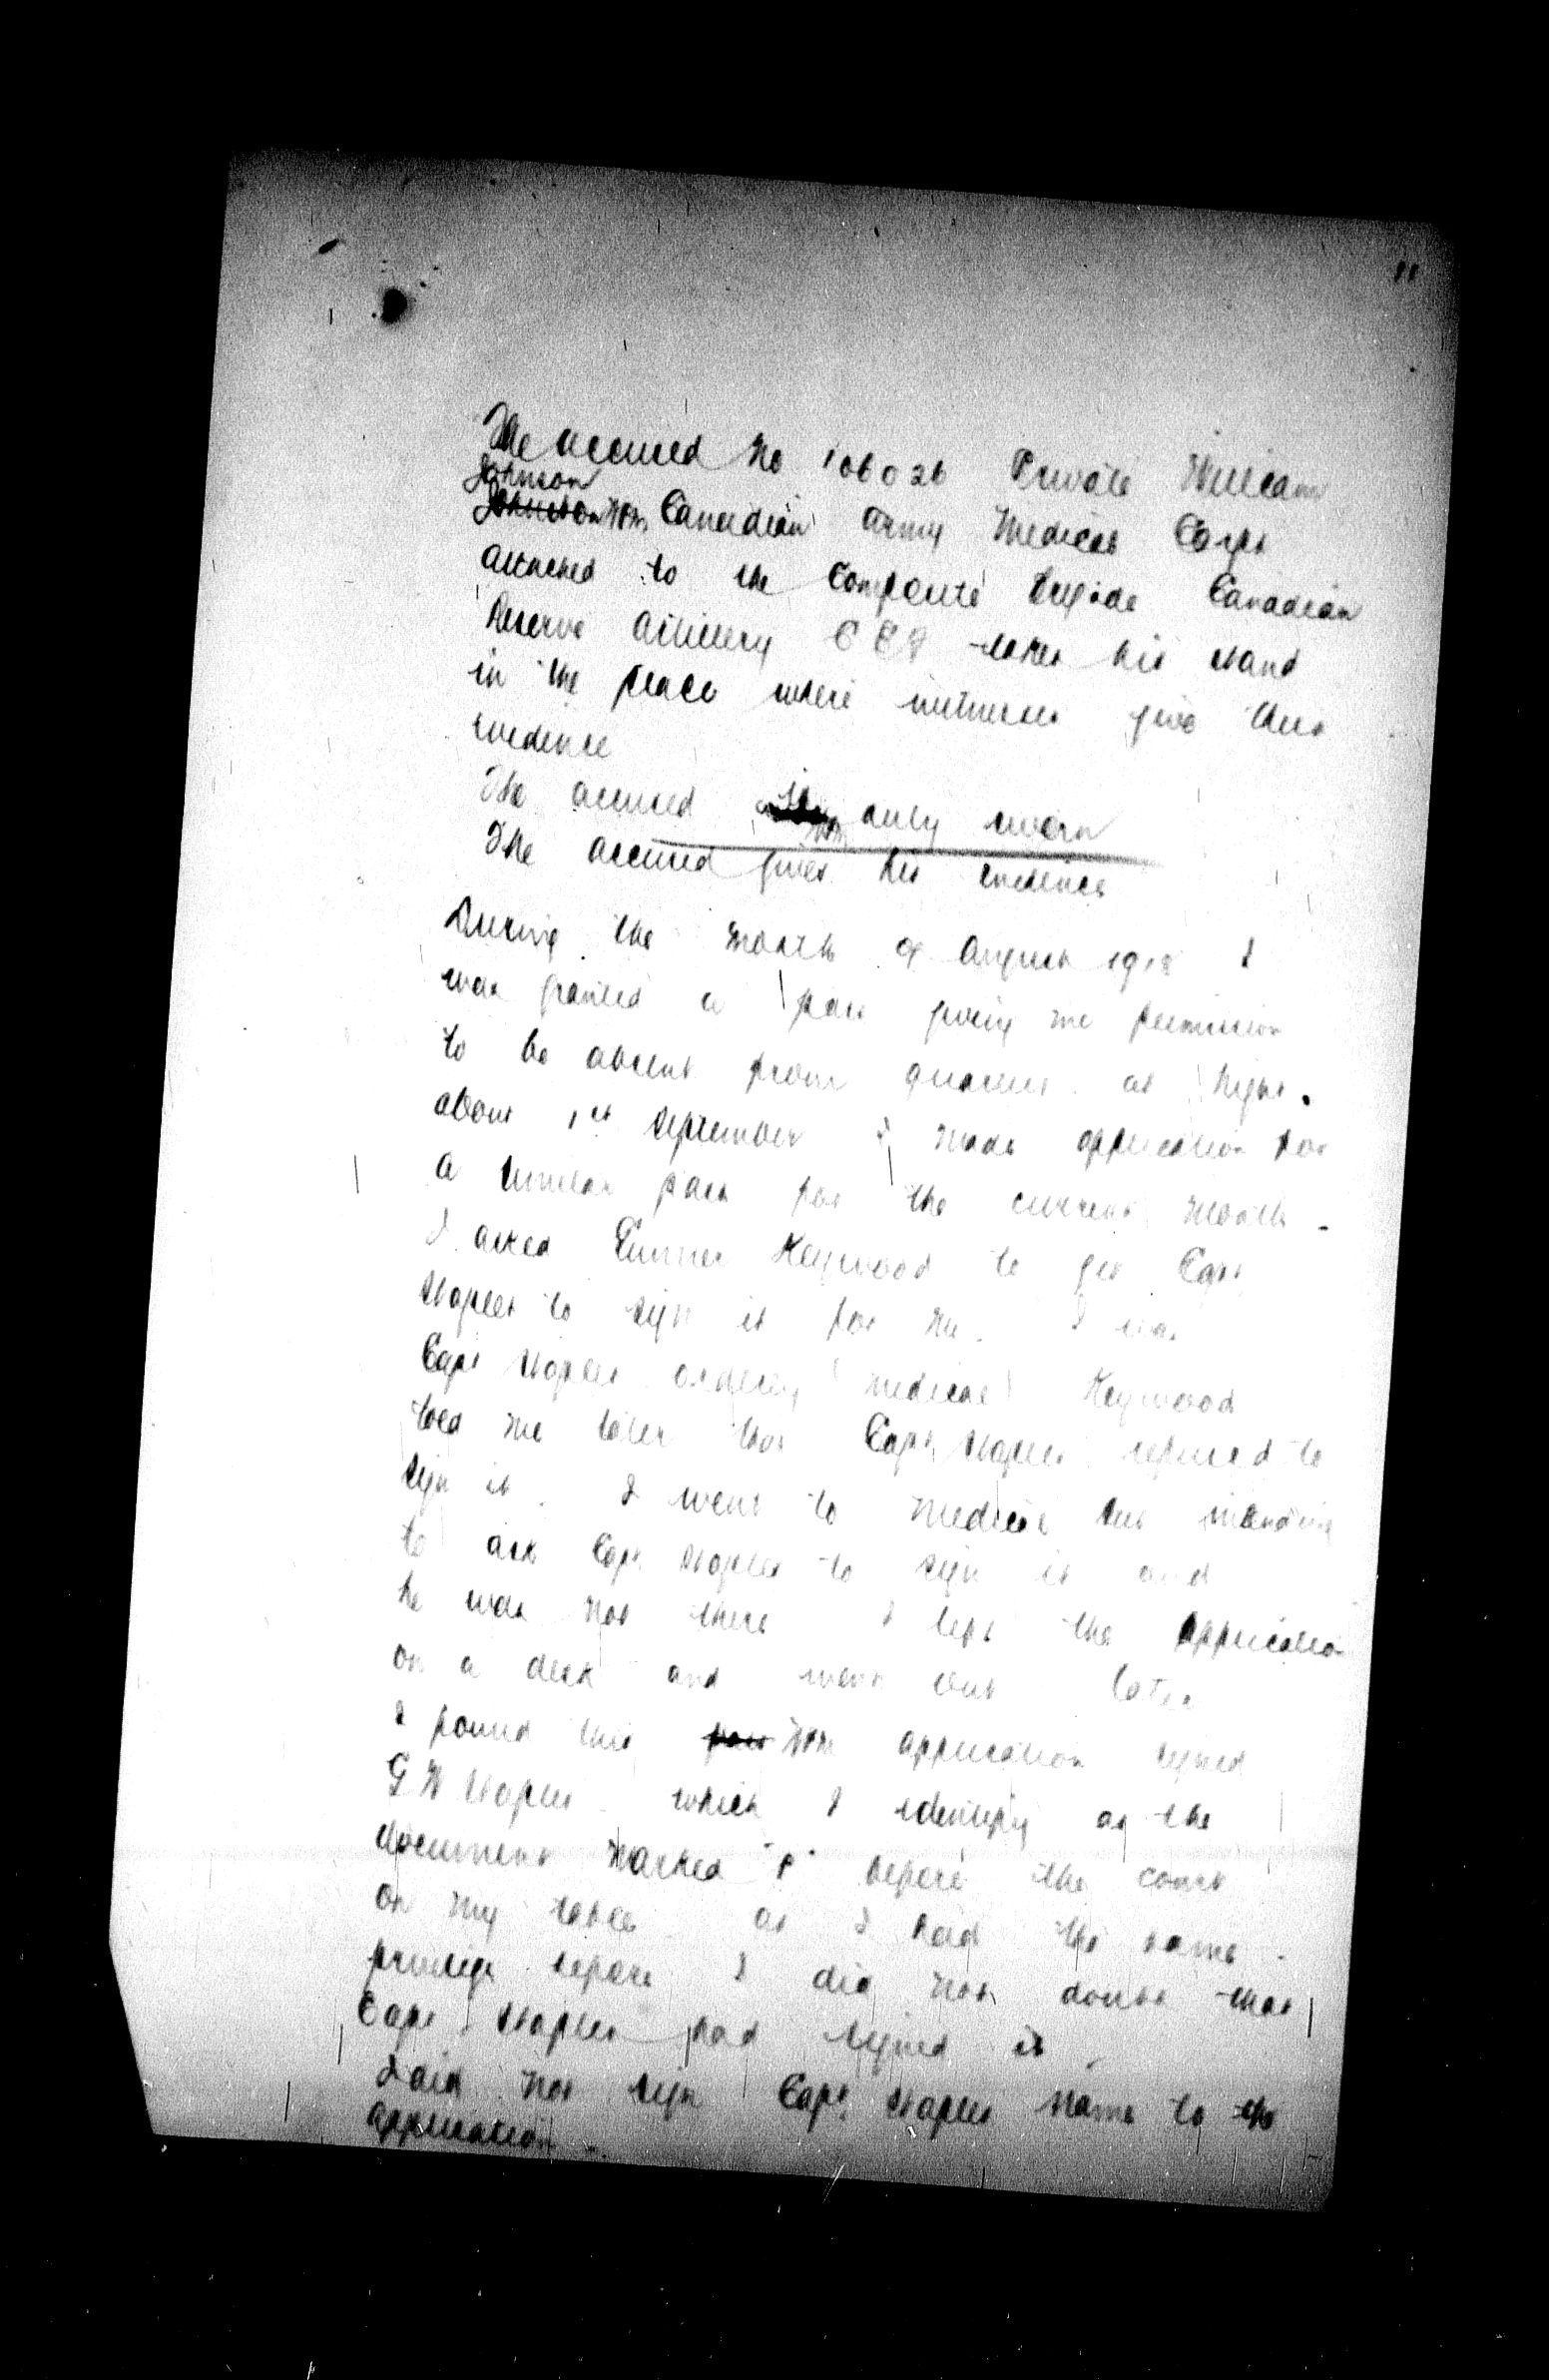 11
The accused No 106026 Private William
Johnson
Johnston Canadian Army Medical Corps
attached to the Composite Brigade Canadian
Reserve Artillery C E F takes his stand
in the place where witnesses give their
evidence
The accused is duly sworn
The accused gives his evidence
During the month of August 1918 I
was granted a pass giving me permission
to be absent from quarters at night.
about 1st September I made application for
a similar pass for the current month -
I asked Gunner Keywood to get Capt
Staples to sign it for me. I was
Capt Staples orderly medical Keywood
told me later that Capt Staples refused to
sign it. I went to medical hut intending
to ask Capt Staples to sign it and
he was not there I left the application
on a desk and went out later
I found this pass application signed
G W Staples which I identify as the
document marked "P" before the court
on my table as I had the same
privilege before I did not doubt that
Capt. Staples had signed it.
I did not sign Capt. Staples name to the
application -